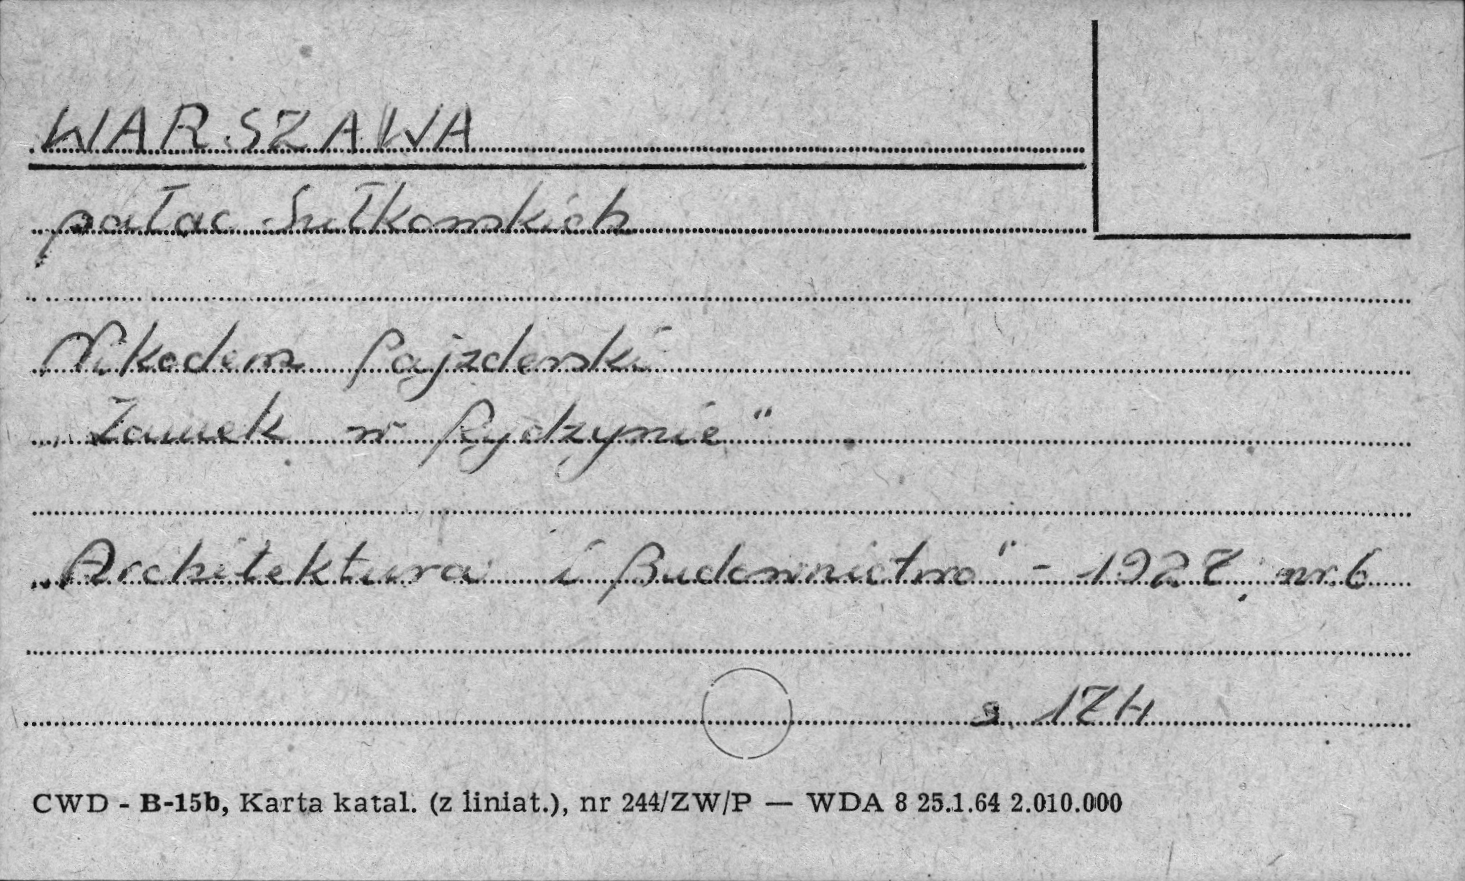 WARSZAWA
pałac Sułkowskich
Nikodem Pajzderski
„Zamek w Rydzynie"
„Architektura i Budownictwo" - 1927, nr.6
s. 174
CWD - B-15b, Karta katal. (z liniat.), nr 244/ZW/P — WDA 8 25.1.64 2.010.000